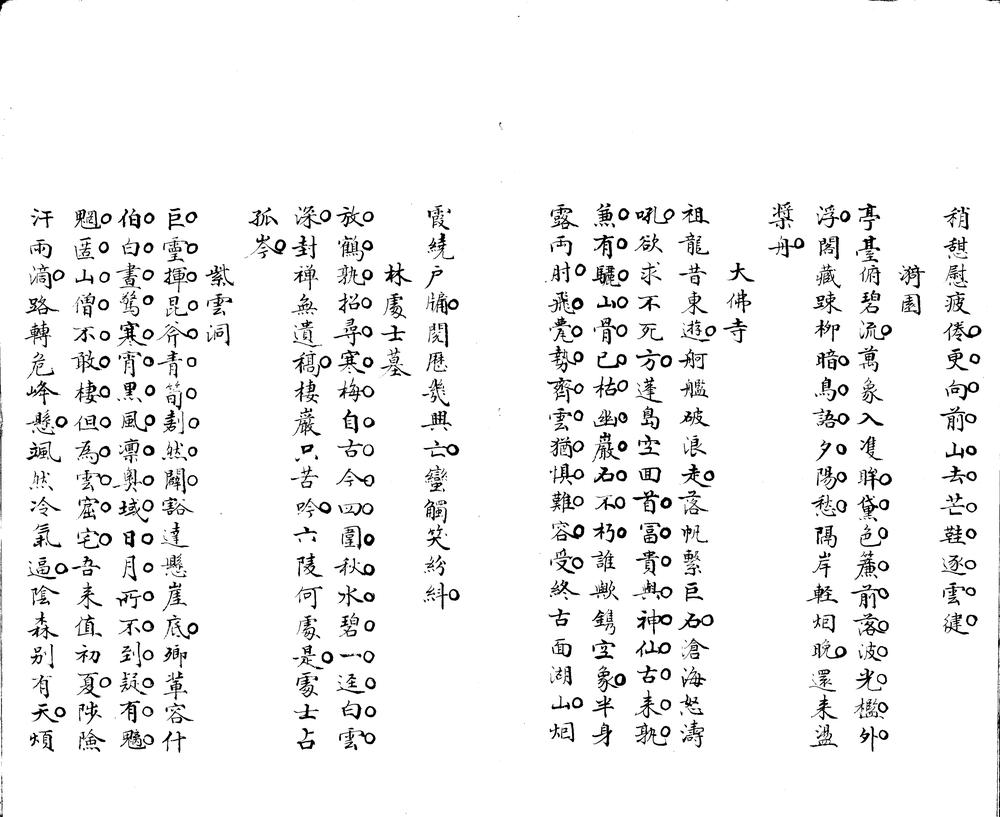 稍憩慰疲倦更向前山去芒鞋逐雲徤
漪園
亭臺俯碧流萬象入雙眸黛色簾前落波光檻外
浮閣藏踈柳暗鳥語夕陽愁隔岸輕烟晚還来盪
槳舟
大佛寺
祖龍昔東遊舸艦破浪走落帆繫巨石滄海怒濤
吼欲求不死方蓬島空回首冨貴與神仙古来孰
兼有驪山骨已枯幽巖石不朽誰歟鐫空象半身
露両肘飛甍勢齊雲猶惧難容受終古面湖山烟
霞繞戶牖閱歴幾興亡蠻觸笑紛糾
林處士墓
放鶴孰招尋寒梅自古今四圍秋水碧一逕白雲
深封禅無遺稿棲巖只苦吟六陵何處是處士占
孤岑
紫雲洞
巨靈揮昆斧青筍劃然闢豁達懸崖底卿輩容什
伯白晝驚寒宵黑風凛奥域日月所不到疑有魑
魍匿山僧不敢棲但為雲窟宅吾来值初夏陟險
汗雨滴路轉危峰懸颯然冷氣逼陰森别有天煩